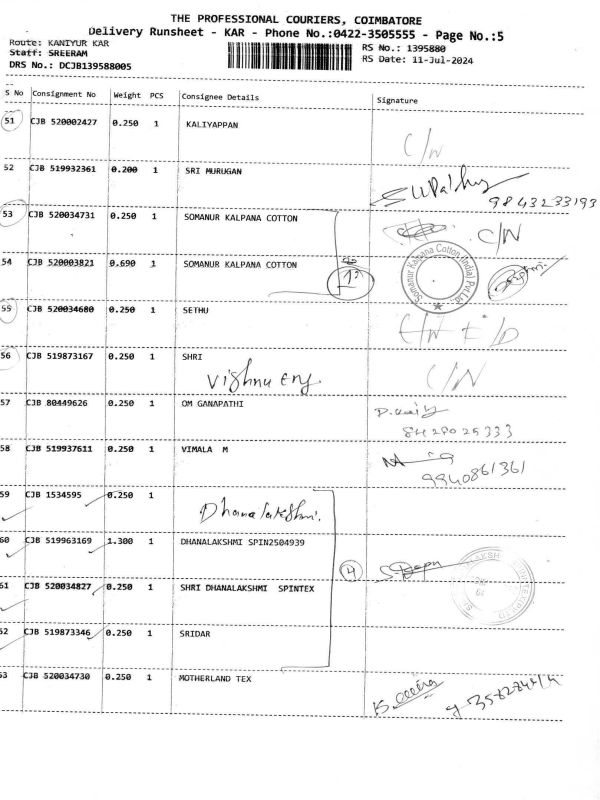 THE PROFESSIONAL COURIERS, COIMBATORE
Delivery Runsheet - KAR - Phone No.:0422-3505555 - Page No.:5
Route: KANIYUR KAR
RS No.: 1395880
Staff: SREERAM
RS Date: 11-Jul-2024
DRS No.: DCJB139588005
S No Consignment No Weight PCS Consignee Details Signature
51 CJB 520002427 0.250 1 KALIYAPPAN
C/N
52 CJB 519932361 0.200 1 SRI MURUGAN
9843233193
53 CJB 520034731 0.250 1 SOMANUR KALPANA COTTON
C/N
54 CJB 520003821 0.690 1 SOMANUR KALPANA COTTON
Somanur Kalpana Cotton (India) Pvt Ltd.
55 CJB 520034680 0.250 1 SETHU
C/N
56 CJB 519873167 0.250 1 SHRI
Vishnu Eng.
C/N
57 CJB 80449626 0.250 1 OM GANAPATHI
8428025333
58 CJB 519937611 0.250 1 VIMALA M
9940861361
59 CJB 1534595 0.250 1
Dhanalakshmi.
60 CJB 519963169 1.300 1 DHANALAKSHMI SPIN2504939
4
61 CJB 520034827 0.250 1 SHRI DHANALAKSHMI SPINTEX
52 CJB 519873346 0.250 1 SRIDAR
53 CJB 520034730 0.250 1 MOTHERLAND TEX